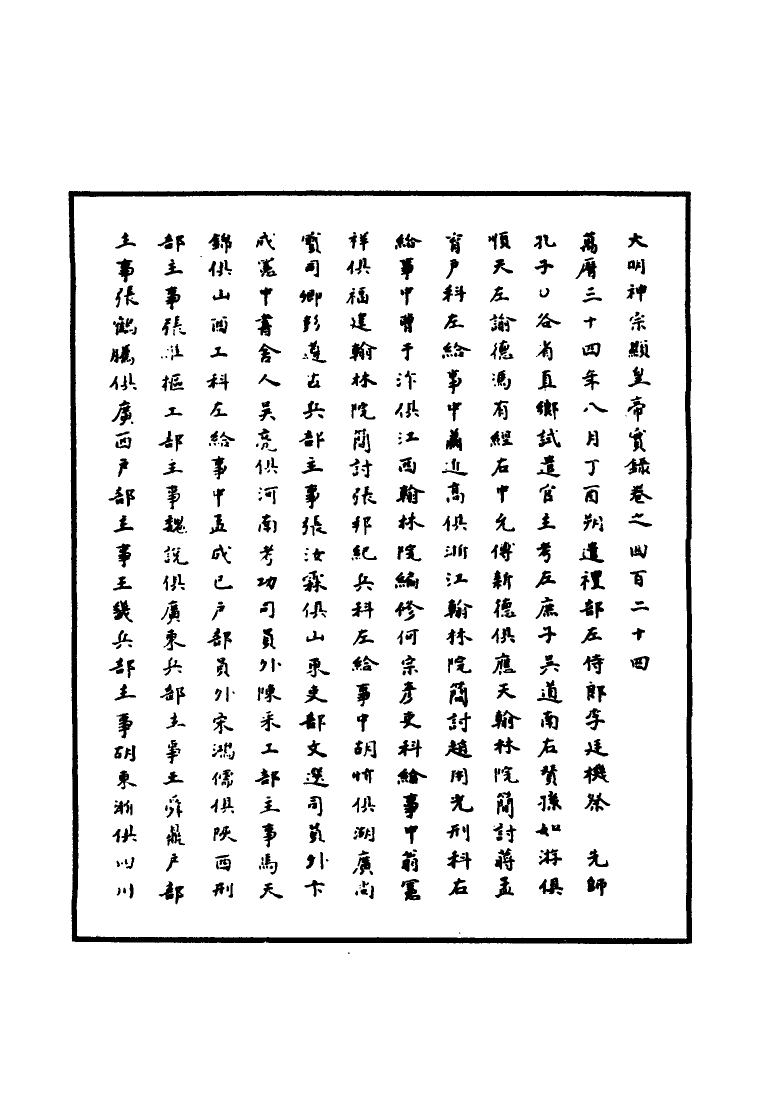 大明神宗顯皇帝實錄卷之四百二十四
萬曆三十四年八月丁酉朔遣禮部左侍郎李廷機祭　先師
孔子以各省直鄉試遣官主考左庶子吳道南右贊孫如游俱
順天左諭德馮有經右中允傅新德俱應天翰林院簡討蔣孟
育戶科左給事中蕭近高俱浙江翰林院簡討趙用光刑科右
給事中曹于汴俱江西翰林院編修何宗彥吏科給事中翁憲
祥俱福建翰林院簡討張邦紀兵科左給事中胡忻俱湖廣尚
寶司卿彭遵古兵部主事張汝霖俱山東吏部文選司員外卞
成憲中書舍人吳亮俱河南考功司員外陳采工部主事馬天
錦俱山西工科左給事中孟成己戶部員外宋鴻儒俱陝西刑
部主事張維樞工部主事魏說俱廣東兵部主事王舜鼎戶部
主事張鶴騰俱廣西戶部主事王幾兵部主事胡東浙俱四川